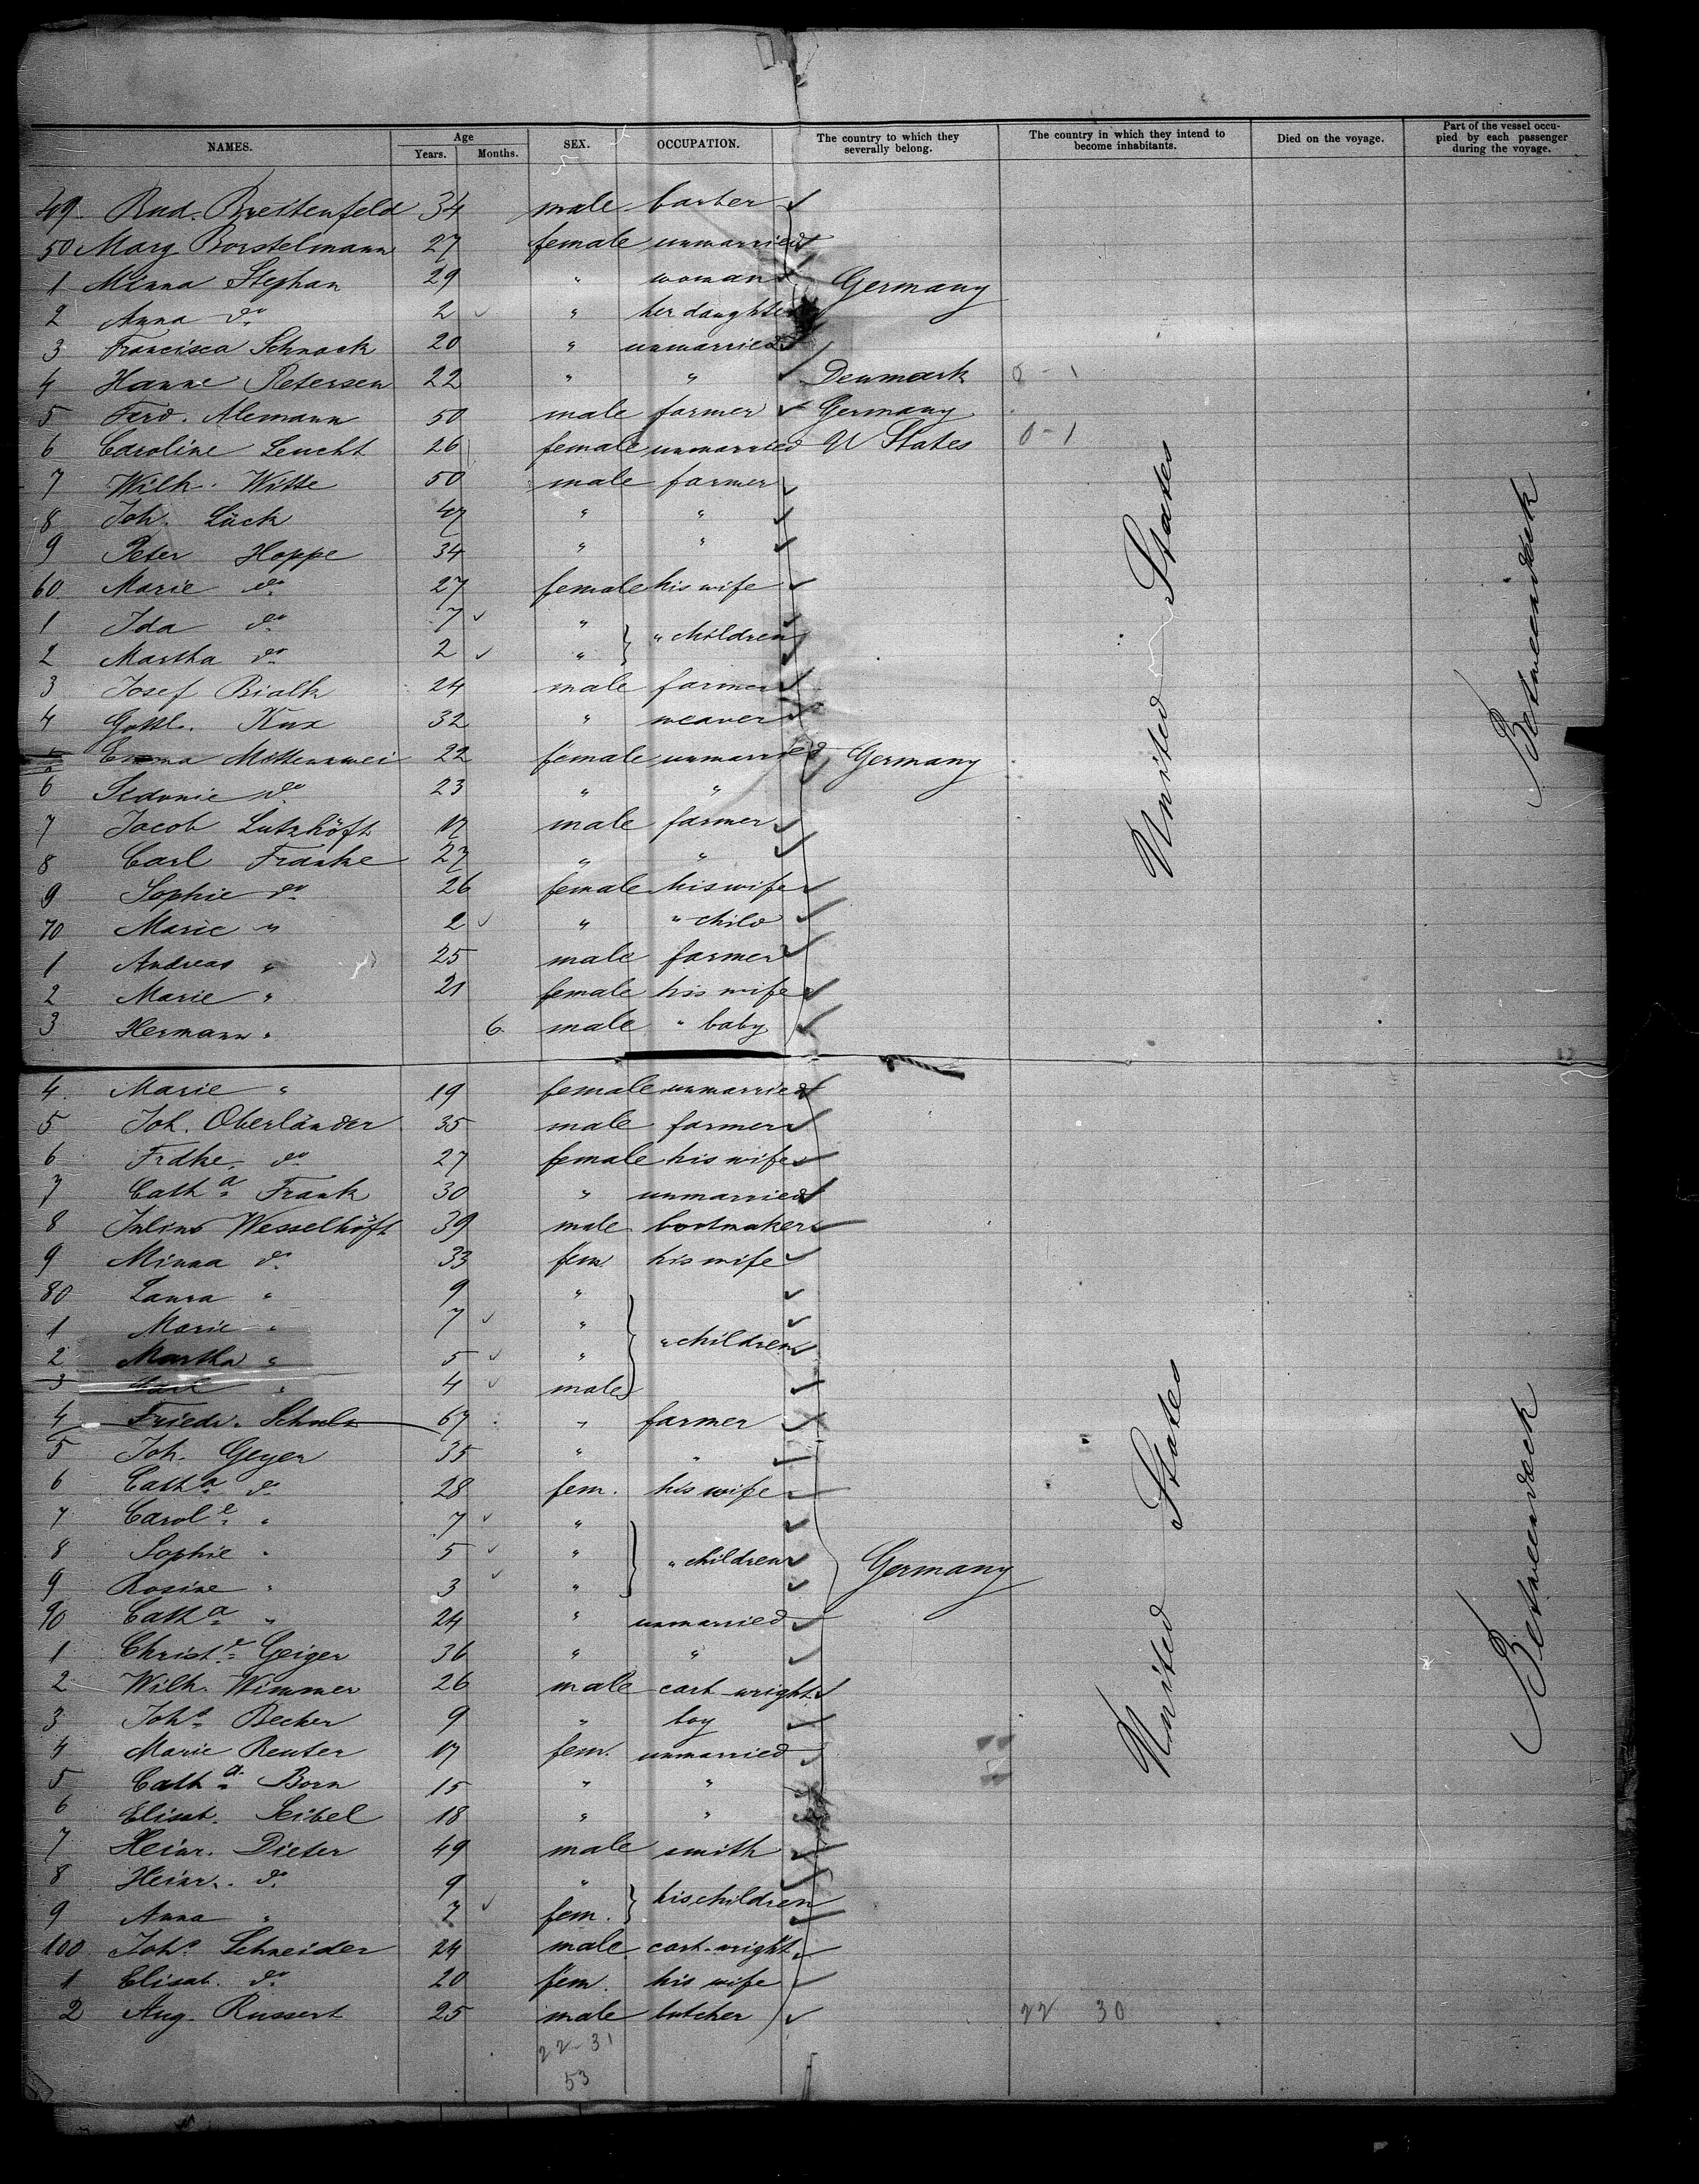 NAMES. Age Years. Months. SEX. OCCUPATION. The country to which they severally belong. The country in which they intend to become inhabitants. Died on the voyage. Part of the vessel occupied by each passenger during the voyage.
49 Rud. Brettenfeld 34 male barber
50 Marg Borstelmann 27 female unmarried
1 Minna Stephan 29 " woman Germany
2 Anna do 2 " her daughter
3 Francisca Schnack 20 " unmarried
4 Hanne Petersen 22 " " Denmark 0-1
5 Ferd. Alemann 50 male farmer Germany
6 Caroline Leucht 26 female unmarried U States 0-1
7 Wilh. Witte 50 male farmer
8 Joh. Lück 47 " "
9 Peter Hoppe 34 " "
60 Marie do 27 female his wife
1 Ida do 7 " " children
2 Martha do 2 "
3 Josef Bialk 24 male farmer
4 Gottl. Kux 32 " weaver
5 Emma Mittenzwei 22 female unmarried Germany
6 Sidonie do 23 " "
7 Jacob Lutzhöft 17 male farmer
8 Carl Franke 27 " "
9 Sophie do 26 female his wife
70 Marie " 2 " " child
1 Andreas " 25 male farmer
2 Marie " 21 female his wife
3 Hermann " 6 male " baby
United States
Betweendeck
4 Marie " 19 female unmarried
5 Joh. Oberländer 35 male farmer
6 Frdke. do 27 female his wife
7 Catha Frank 30 " unmarried
8 Julius Wesselhöft 39 male bootmaker
9 Minna do 33 fem. his wife
80 Laura " 9 "
1 Marie " 7 " " children
2 Martha " 5 "
3 Carl " 4 male
4 Friedr. Schulz 67 " farmer
5 Joh. Geyer 35 " "
6 Catha do 28 fem. his wife
7 Carole " 7 "
8 Sophie " 5 " " children Germany
9 Rosine " 3 "
90 Catha " 24 " unmarried
1 Christe Geiger 36 " "
2 Wilh. Wimmer 26 male cart-wright
3 Johs Becker 9 " boy
4 Marie Reuter 17 fem. unmarried
5 Catha Born 15 " "
6 Elisab. Seibel 18 " "
7 Heinr. Dieter 49 male smith
8 Heinr. do 9 " his children
9 Anna " 7 fem.
100 Johs Schneider 24 male cart-wright
1 Elisab. do 20 fem. his wife
2 Aug. Russert 25 male butcher 22 30
United States
Betweendeck
22-31
53